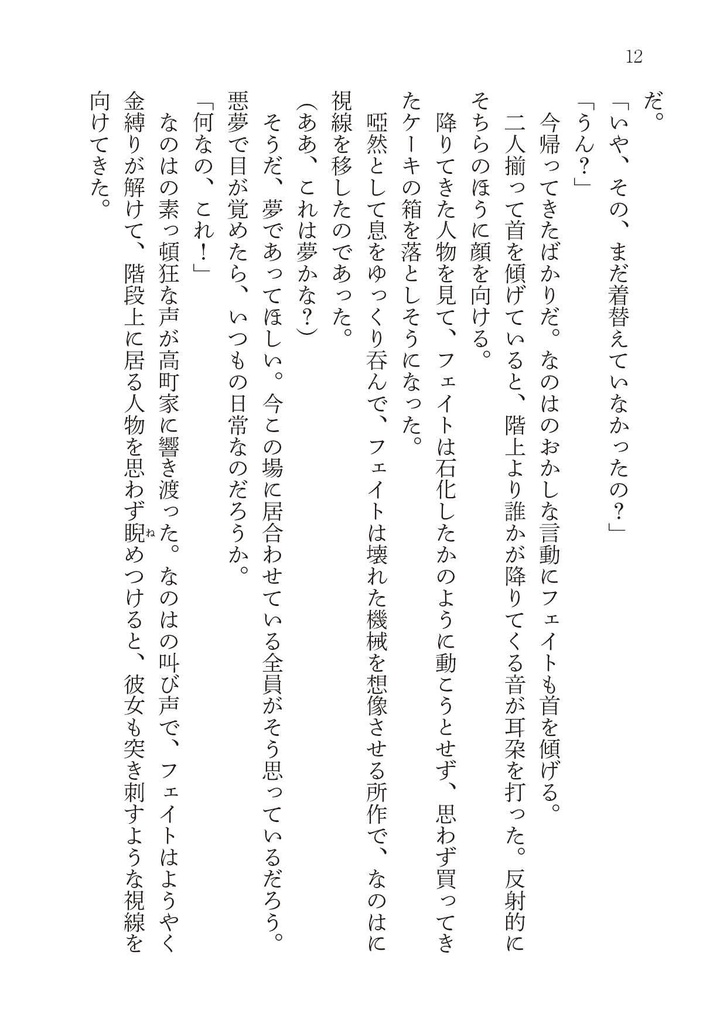 12
だ。
「いや、その、まだ着替えていなかったの？」
「うん？」
　今帰ってきたばかりだ。なのはのおかしな言動にフェイトも首を傾げる。
　二人揃って首を傾げていると、階上より誰かが降りてくる音が耳朶を打った。反射的に
そちらのほうに顔を向ける。
　降りてきた人物を見て、フェイトは石化したかのように動こうとせず、思わず買ってき
たケーキの箱を落としそうになった。
　啞然として息をゆっくり吞んで、フェイトは壊れた機械を想像させる所作で、なのはに
視線を移したのであった。
（ああ、これは夢かな？）
　そうだ、夢であってほしい。今この場に居合わせている全員がそう思っているだろう。
悪夢で目が覚めたら、いつもの日常なのだろうか。
「何なの、これ！」
　なのはの素っ頓狂な声が高町家に響き渡った。なのはの叫び声で、フェイトはようやく
金縛りが解けて、階段上に居る人物を思わず睨ねめつけると、彼女も突き刺すような視線を
向けてきた。